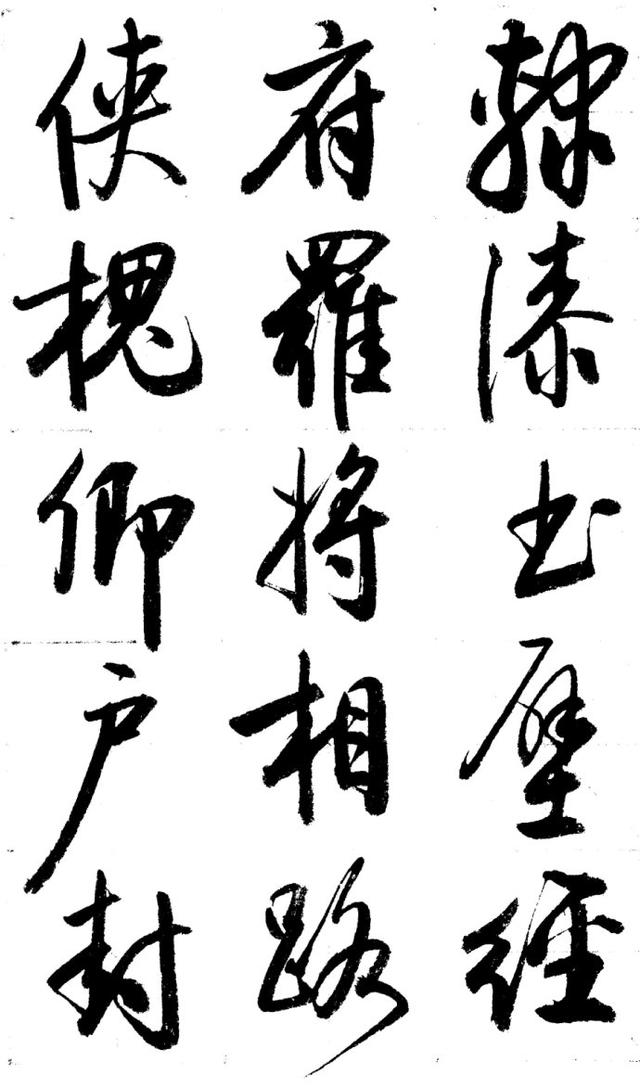 隸漆書壁經
府羅將相路
俠槐卿戶封